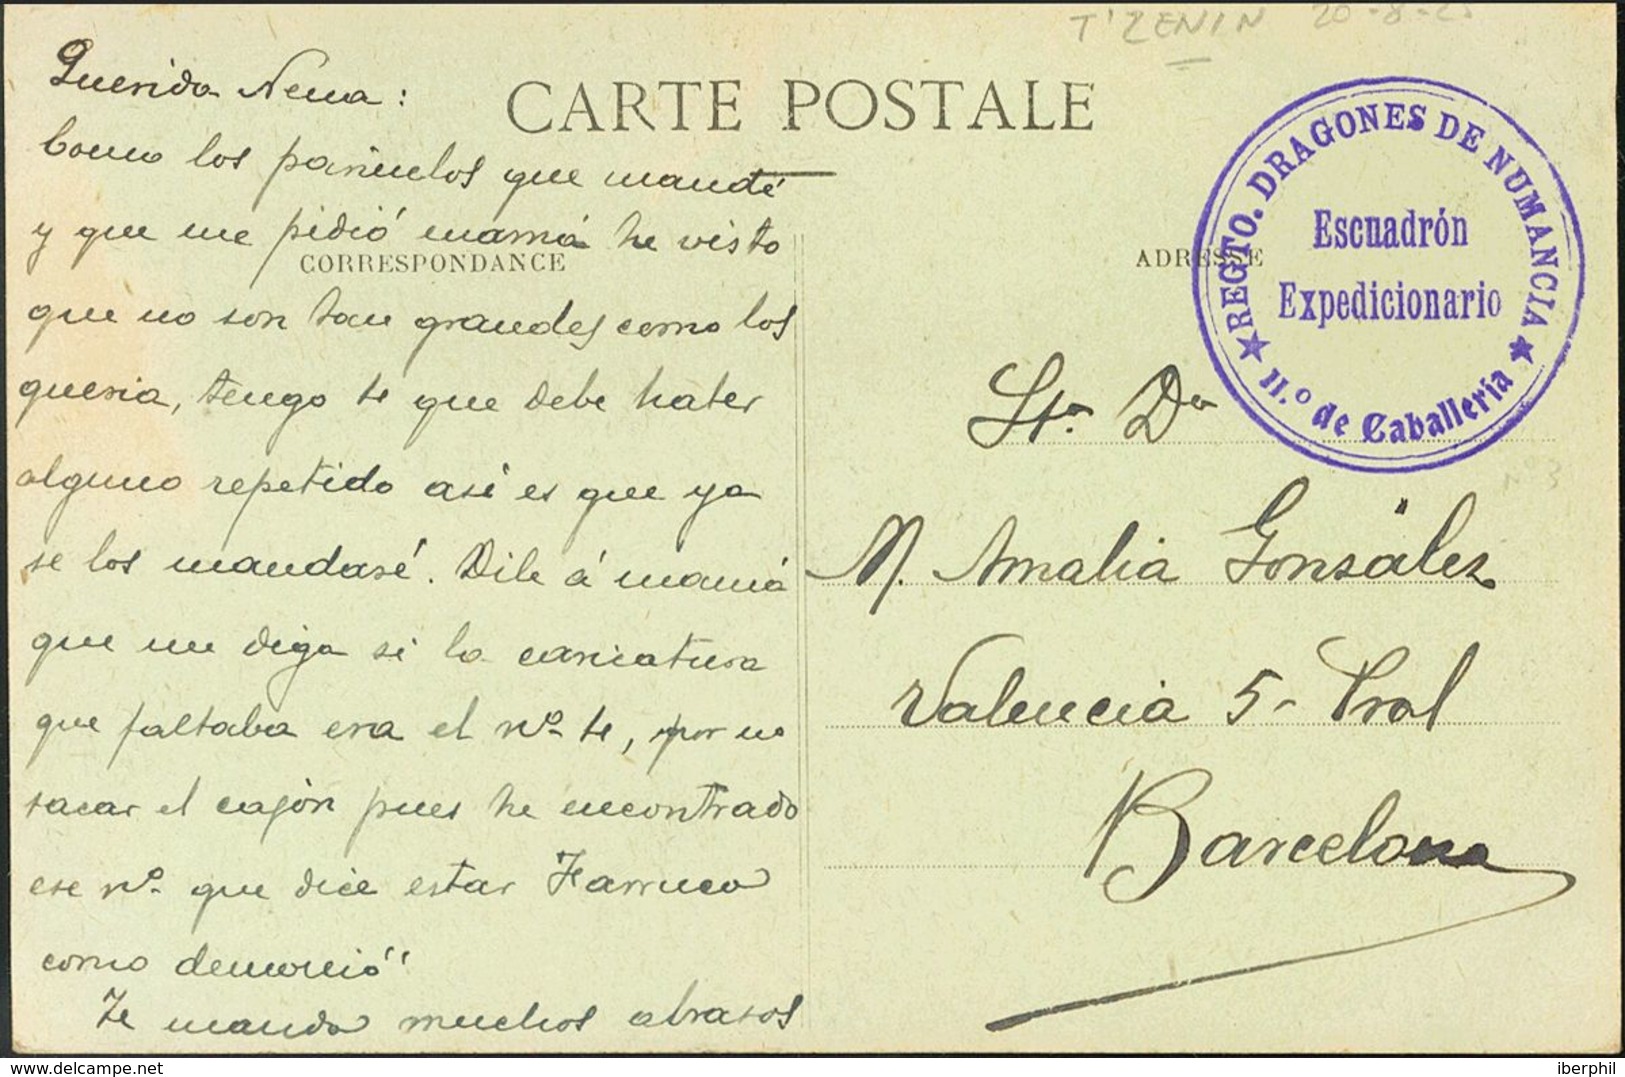 T'ZENIN 20-8-2
CARTE POSTALE
Querida Nena:
Como los pañuelos que mandé
y que me pidió mamá he visto
que no son tan grandes como los
queria, tengo te que debe haber
alguno repetido asi es que ya
se los mandaré. Dile á mamá
que me diga si la caricatura
que faltaba era el nº te, por no
sacar el cajón pues he encontrado
ese nº que dice estar
como
Te manda muchos abrazos
CORRESPONDANCE
ADRESSE
REGTO. DRAGONES DE NUMANCIA
Escuadrón
Expedicionario
★ 11.º de Caballeria ★
Nº3
Sta. Da
M. Amalia González
Valencia 5- Pral
Barcelona
delcampe.net
iberphil